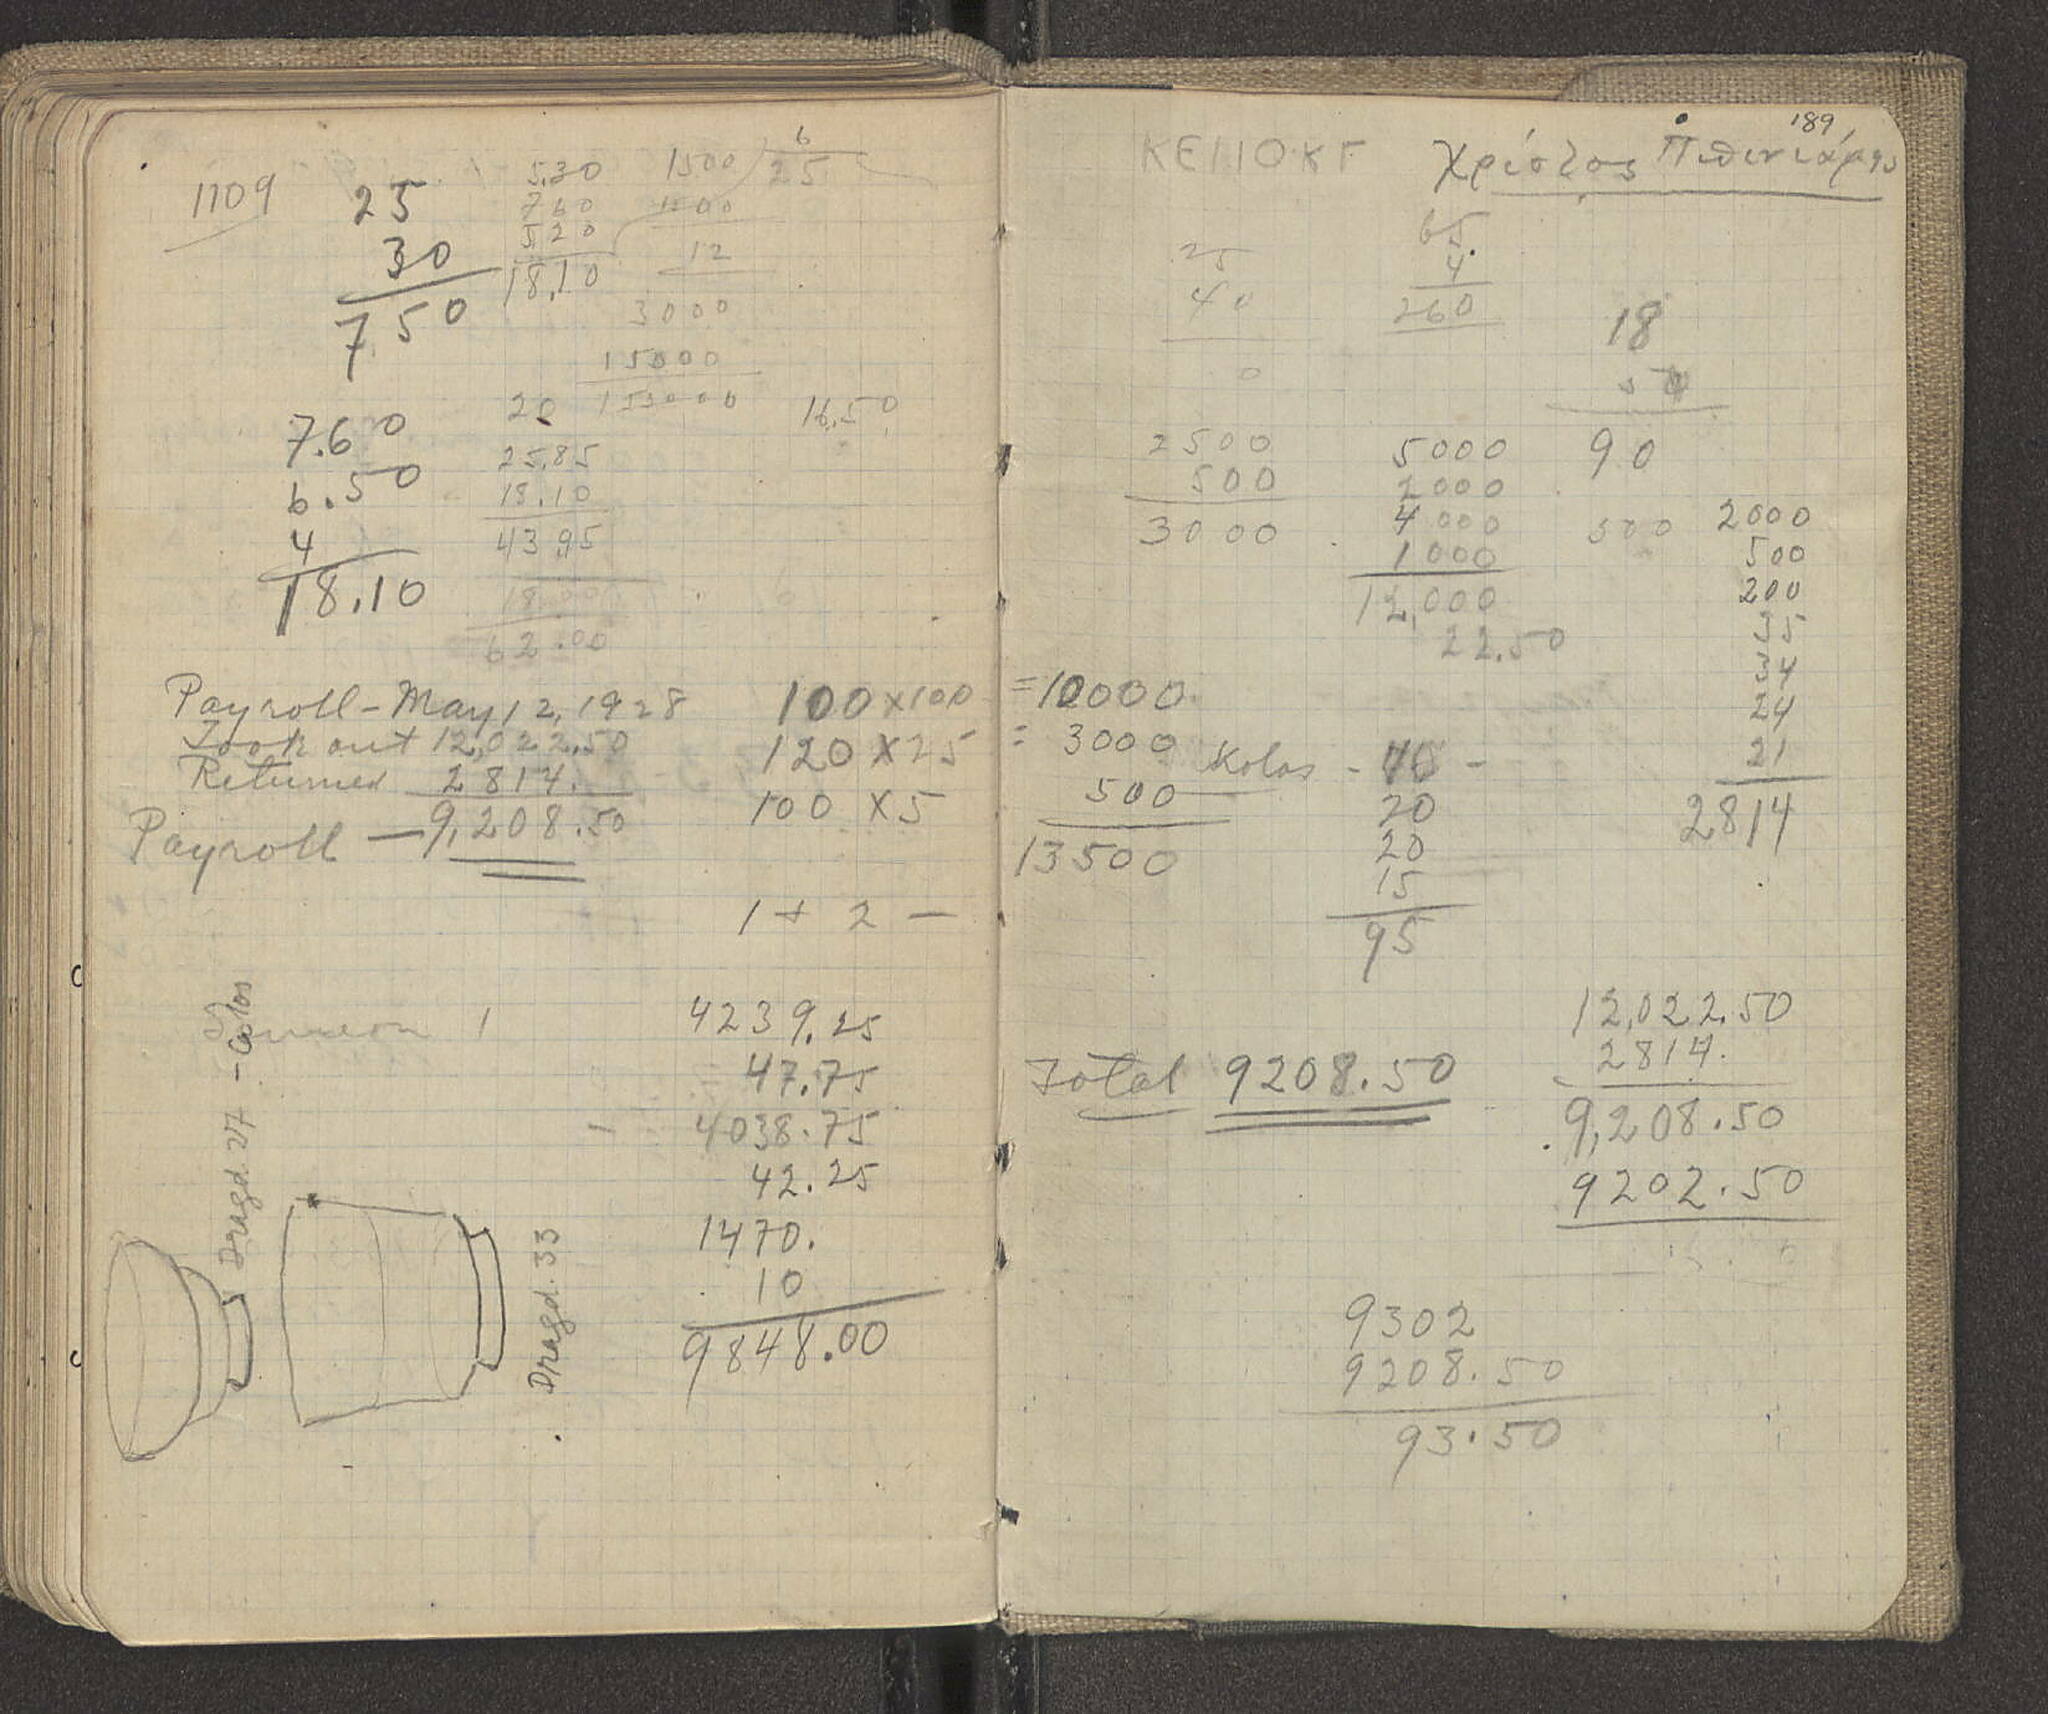 1109
25
30
750
5.30
7 60
5 20
18.10
1500
6
25
1500
12
3000
15000
153000
7.60
6.50
4
18.10
20
25.85
18.10
43.95
18.00
62.00
16.50
Payroll - May 12, 1928
Took out 12,022.50
Returned 2814.
Payroll — 9,208.50
100 x 100
120 x 25
100 x 5
1 + 2 —
1
4239.25
47.75
4038.75
42.25
1470.
10
9848.00
Dragd. 27 - Colos
Dragd. 33
189
Χρίστος
25
40
0
65
4
260
18
90
2500
500
3000
5000
2000
4000
1000
12,000
22.50
500
2000
500
200
35
34
24
21
2814
= 10000
= 3000
500
13500
Kolos - 40 -
20
20
15
95
Total 9208.50
12,022.50
2814.
9,208.50
9202.50
9302
9208.50
93.50